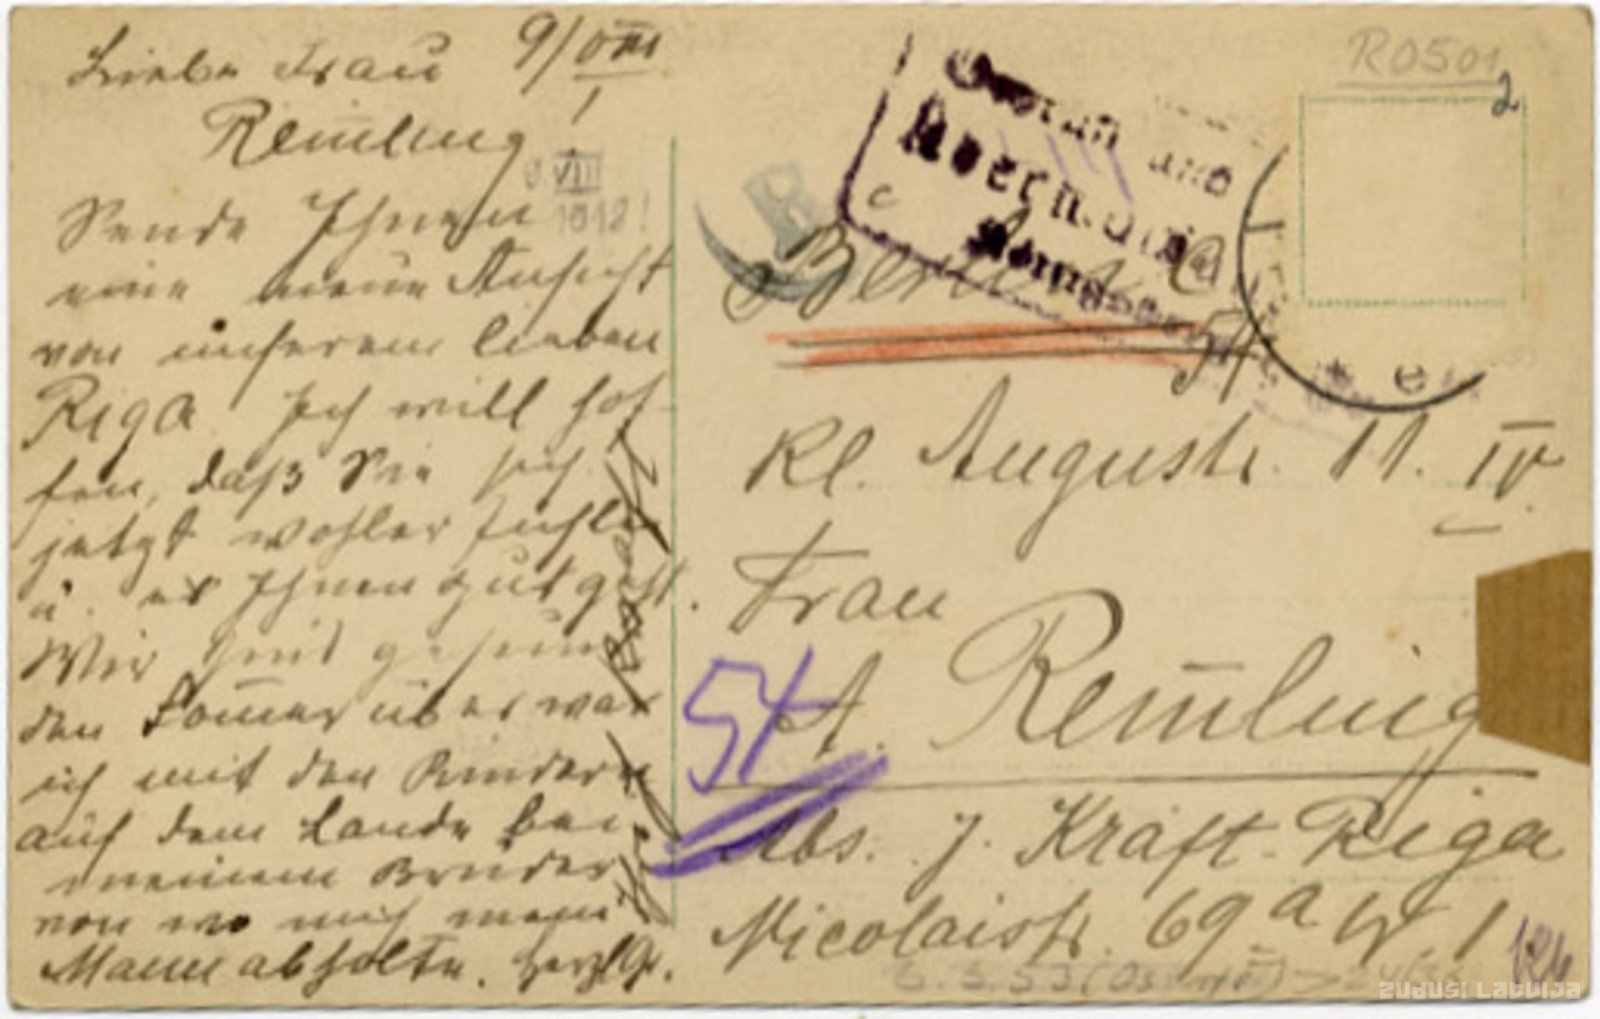 9/VIII
Liebe Frau
Remling!
Sende Ihnen
eine neue Ansicht
von unserem lieben
Riga. Ich will hof-
fen, daß Sie sich
jetzt wohler fühlen
u. es Ihnen gut geht.
Wir sind gesund
den Som̄er über war
ich mit den Kindern
auf dem Lande bei
meinem Bruder
von wo mich mein
Mann abholte. Herzl. Gr.
VIII
1918!
R0501
2
R
Berlin C
54
Kl. Auguststr. 11. IV
Frau
A. Rem̄ling
54
Abs. J. Kraft-Riga
Nicolaistr. 69a W 1
ZUDUSI LATVIJA